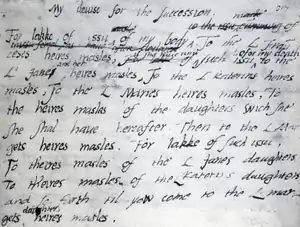 My devise for the succession.
For lakke of issu of my body
cests heires masles, of such issu, to the
L' Janes heires masles, To the L Katerins heires
masles, To the L Maries heires masles, To
the heires masles of the daughters wich she
she shal have hereafter. Then to the L Mar
gets heires masles. For lakke of such issu,
To theires masles of the L Janes daughters
To theires masles of the L Katerins daughters
and so forth til yow come to the L mar
daughters
gets heires masles.